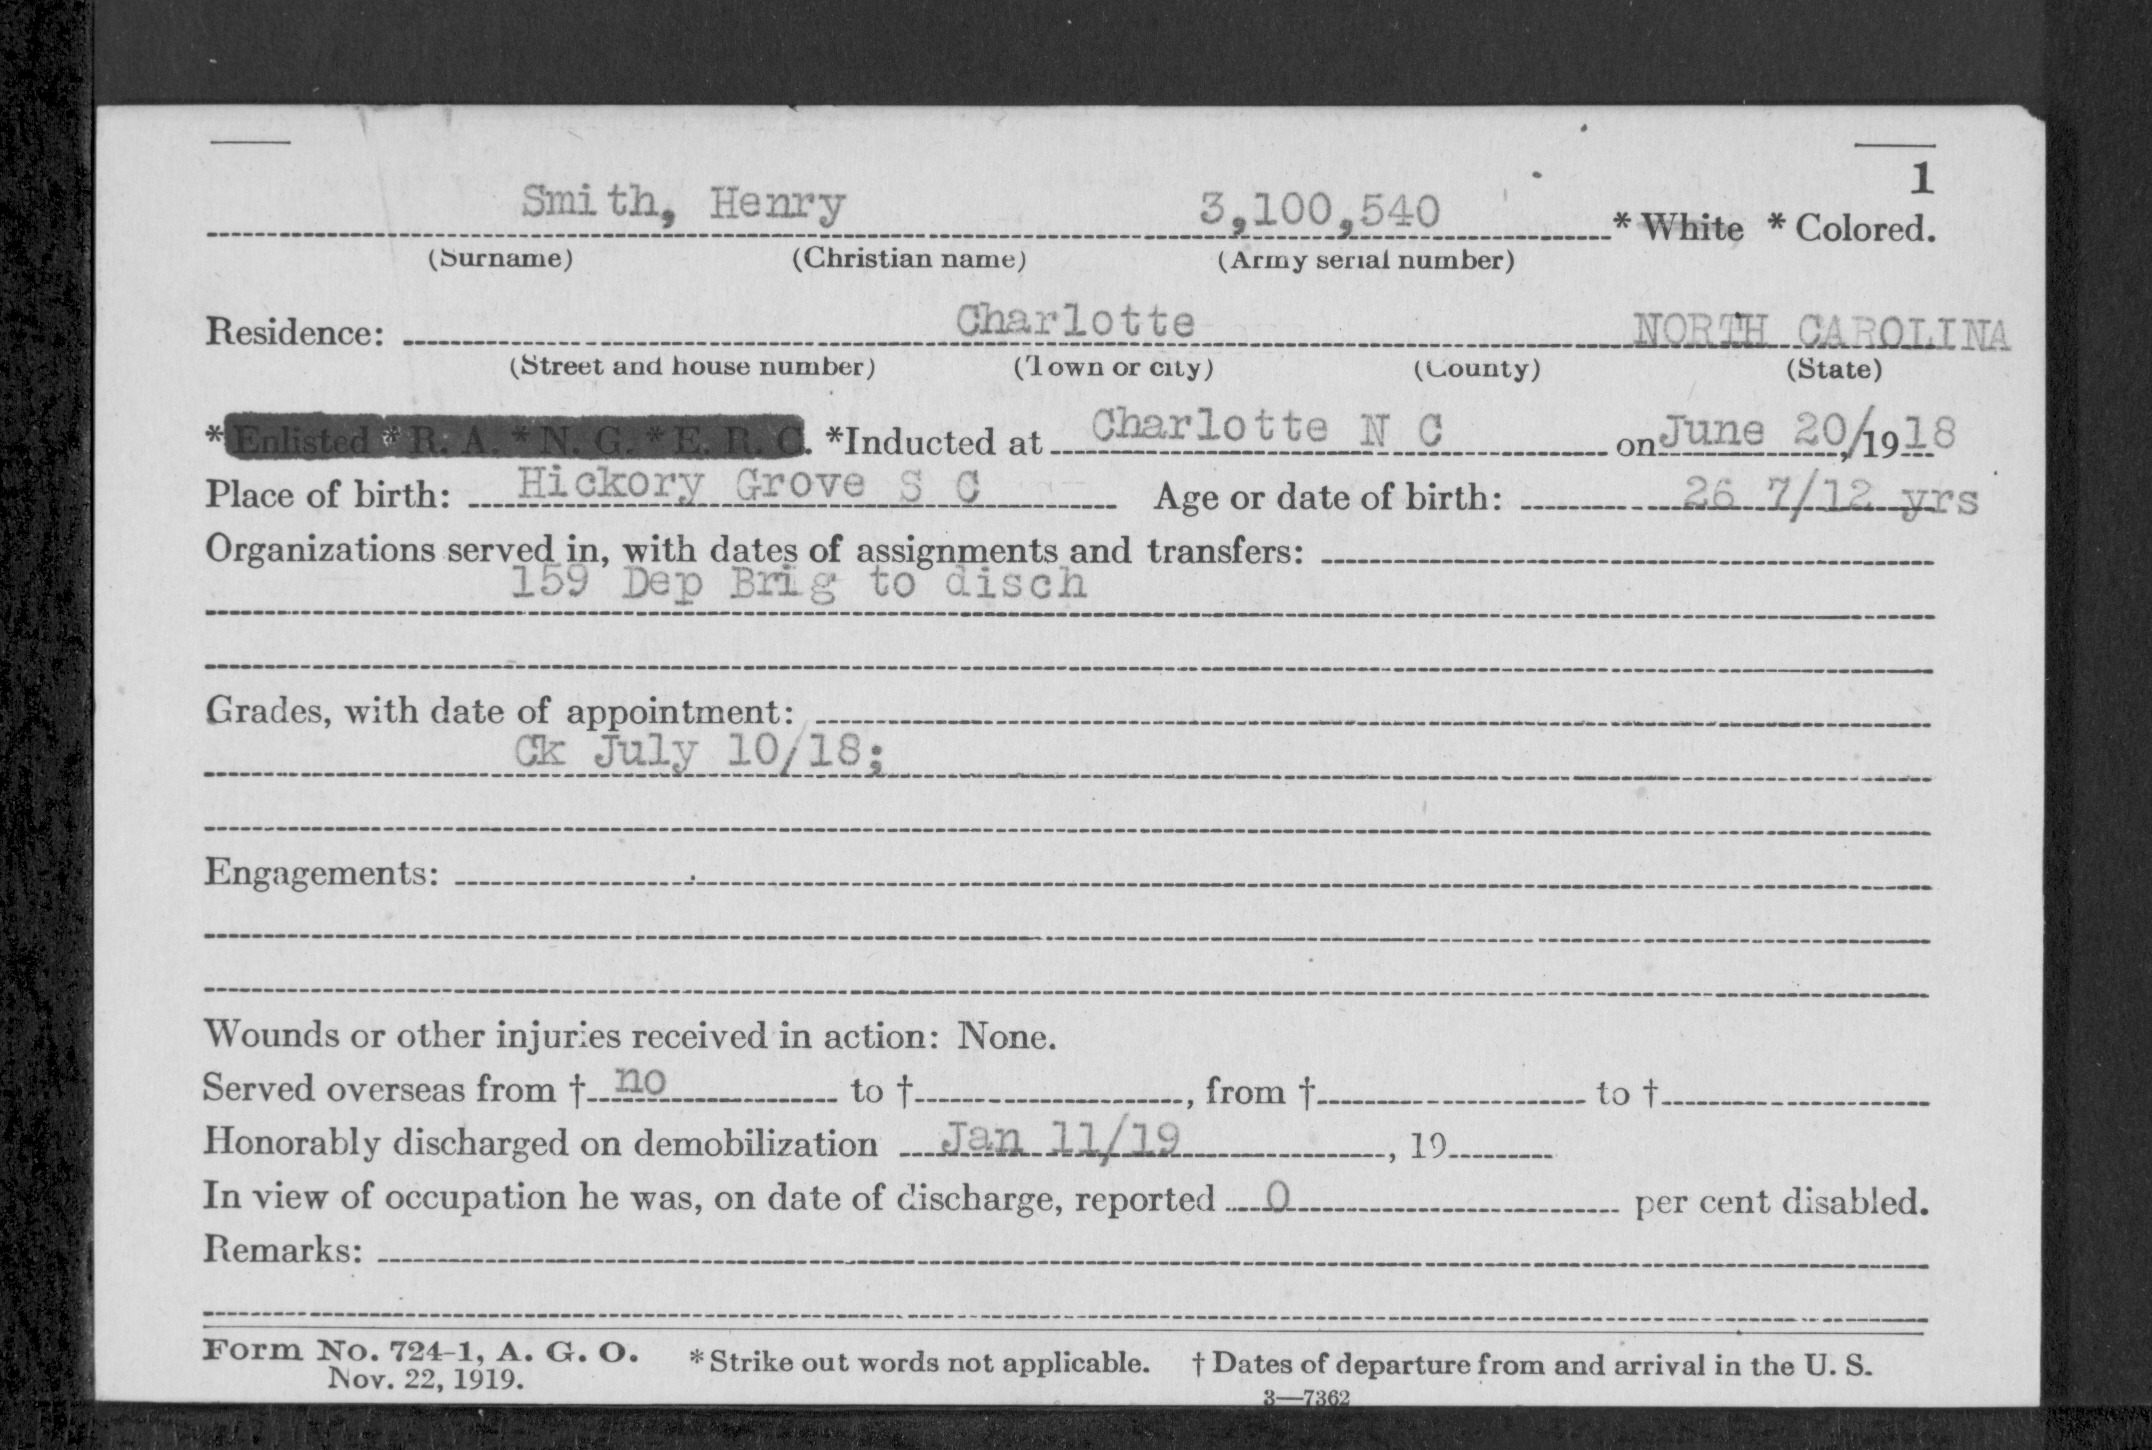 1
Smith, Henry 3,100,540 * White * Colored.
(Surname) (Christian name) (Army serial number)
Residence: Charlotte NORTH CAROLINA
(Street and house number) (Town or city) (County) (State)
*Enlisted *R. A. *N. G. *E. R. C. *Inducted at Charlotte N C on June 20/, 1918
Place of birth: Hickory Grove S C Age or date of birth: 26 7/12 yrs
Organizations served in, with dates of assignments and transfers:
159 Dep Brig to disch
Grades, with date of appointment:
Ck July 10/18;
Engagements:
Wounds or other injuries received in action: None.
Served overseas from † no to †, from † to †
Honorably discharged on demobilization Jan 11/19, 19
In view of occupation he was, on date of discharge, reported 0 per cent disabled.
Remarks:
Form No. 724-1, A. G. O. *Strike out words not applicable. † Dates of departure from and arrival in the U. S.
Nov. 22, 1919.
3—7362